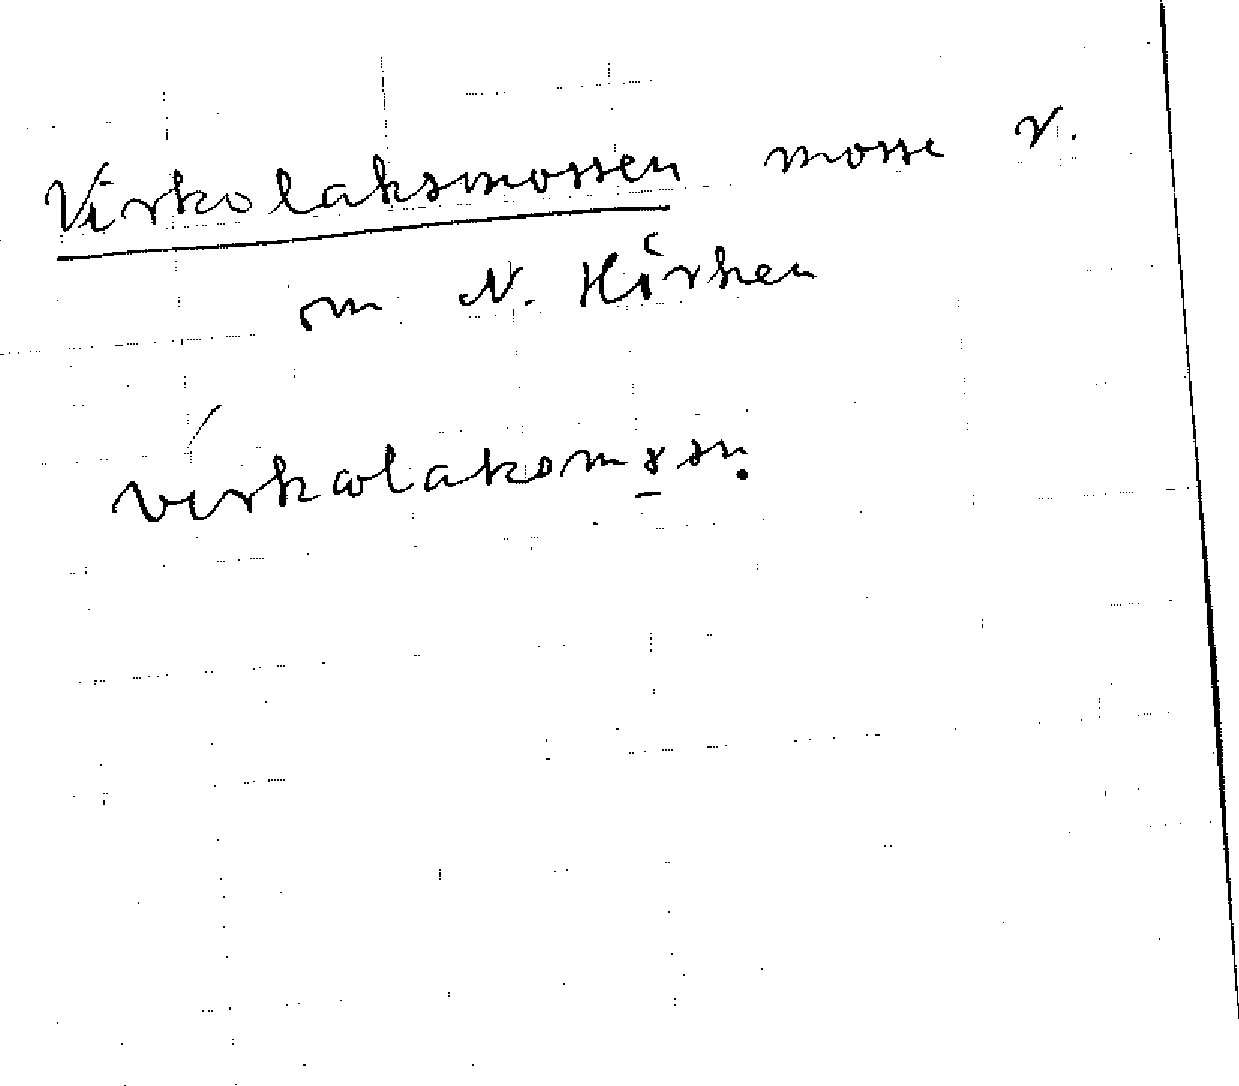 Virkolaksmossen mosse v.
om N. Hirken
virkωlaksmsn.